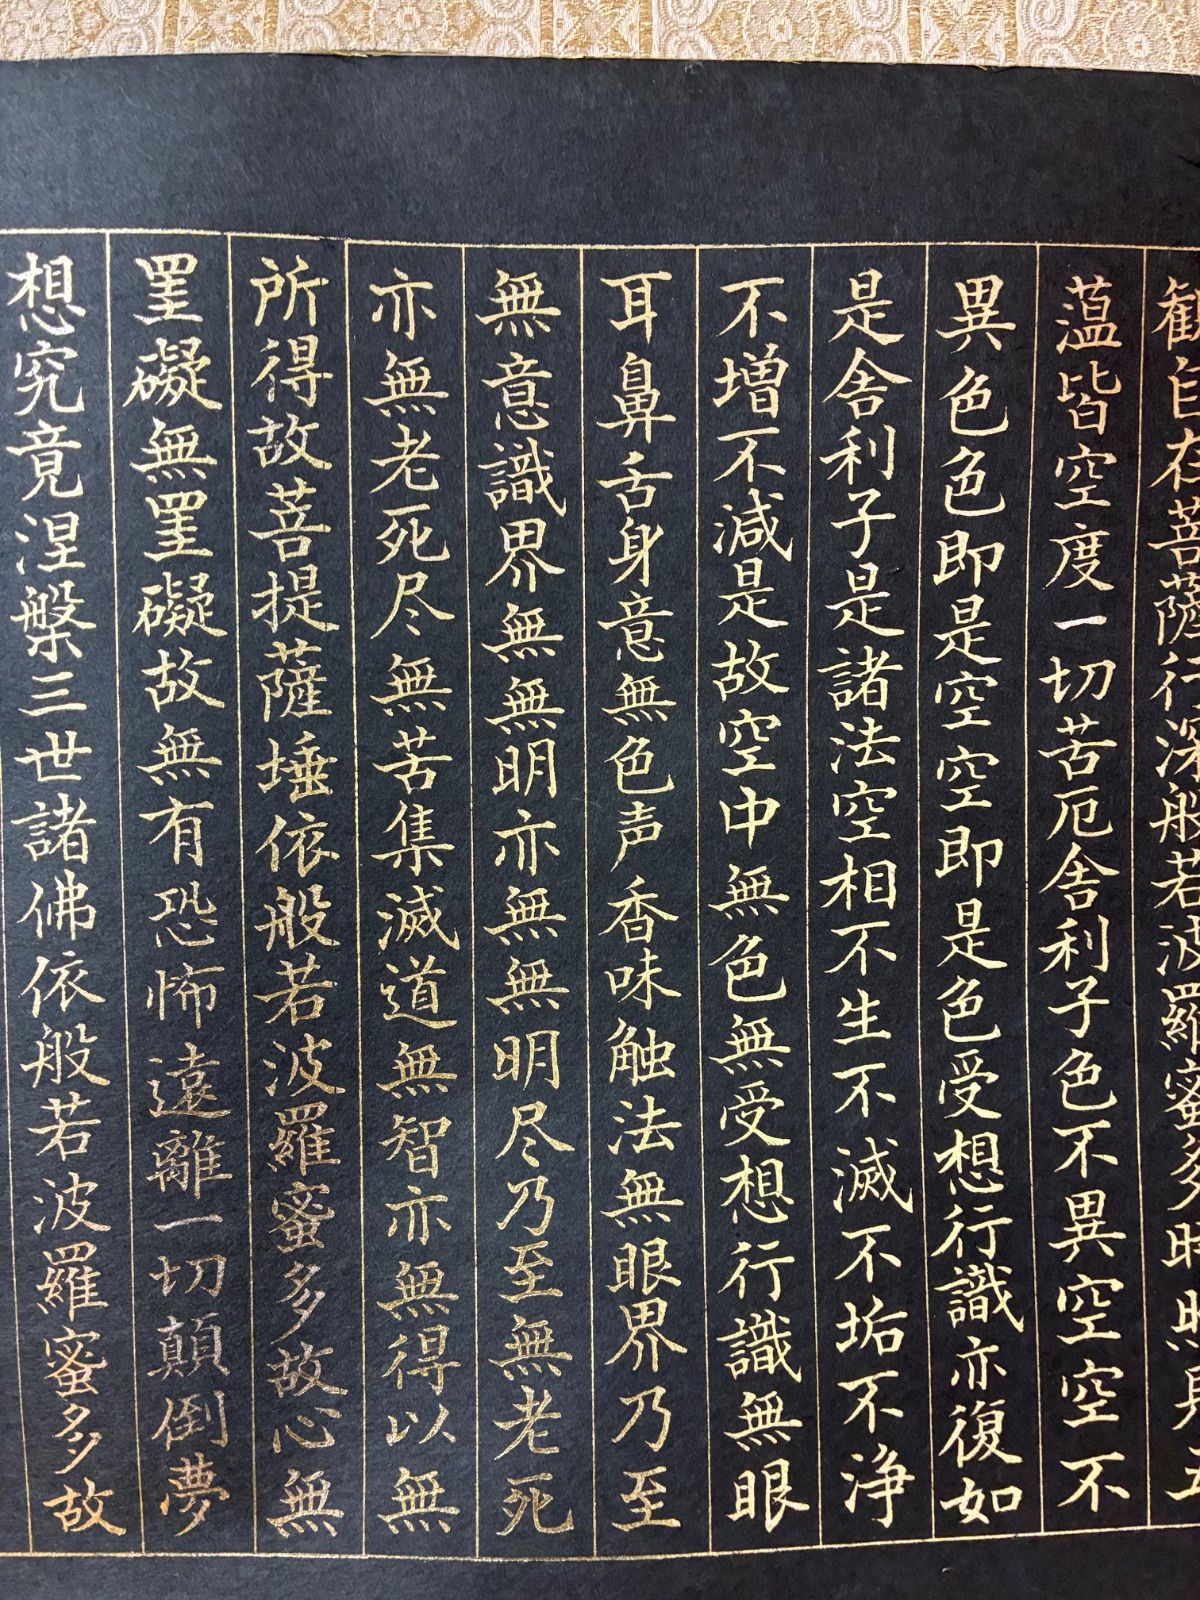 観自在菩薩行深般若波羅蜜多時照見五
薀皆空度一切苦厄舎利子色不異空空不
異色色即是空空即是色受想行識亦復如
是舎利子是諸法空相不生不滅不垢不浄
不増不減是故空中無色無受想行識無眼
耳鼻舌身意無色声香味触法無眼界乃至
無意識界無無明亦無無明尽乃至無老死
亦無老死尽無苦集滅道無智亦無得以無
所得故菩提薩埵依般若波羅蜜多故心無
罣礙無罣礙故無有恐怖遠離一切顛倒夢
想究竟涅槃三世諸佛依般若波羅蜜多故